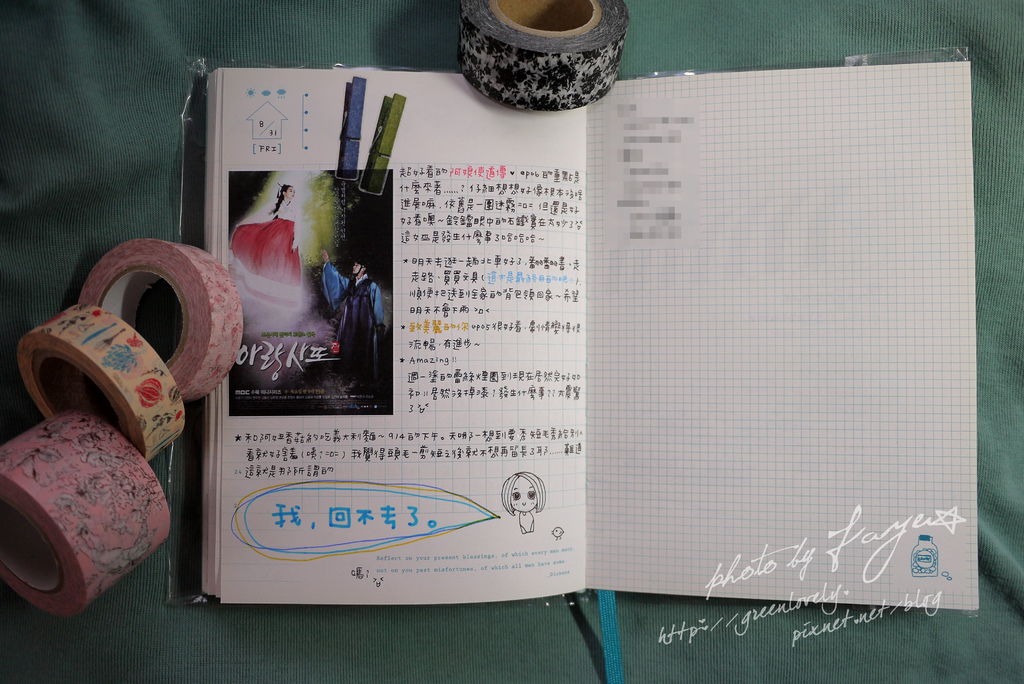 8/31
[FRI]
超好看的阿娘使道傳♥ep06的重點是
什麼來著……？仔細想想好像根本沒啥
進展嘛，依舊是一團迷霧=口= 但還是好
好看噢～
這女巫是發生什麼事了哈哈哈～
★明天去逛一趟北車好了，看看書、走
走路、買買文具(這才是最終目的吧)，
順便把送到全家的背包領回家～希望
明天不會下雨 >口<
★致美麗的你 ep05很好看，劇情變得很
流暢，有進步～
★Amazing!!
週一塗的蕾絲煙圈到現在居然完好如
初!!居然沒掉漆！發生什麼事??太驚驚
了
아랑사또
MBC
★和阿如香菇約吃義大利麵～9/4的下午。
我覺得頭毛一剪短之後就不想再留長了耶……難道
這就是所謂的
我，回不去了。
嗎？
Reflect on your present blessings, of which every man has many
not on you past misfortunes, of which all men have some
_Dickens
photo by Faye☆
http://greenlovely.
pixnet.net/blog